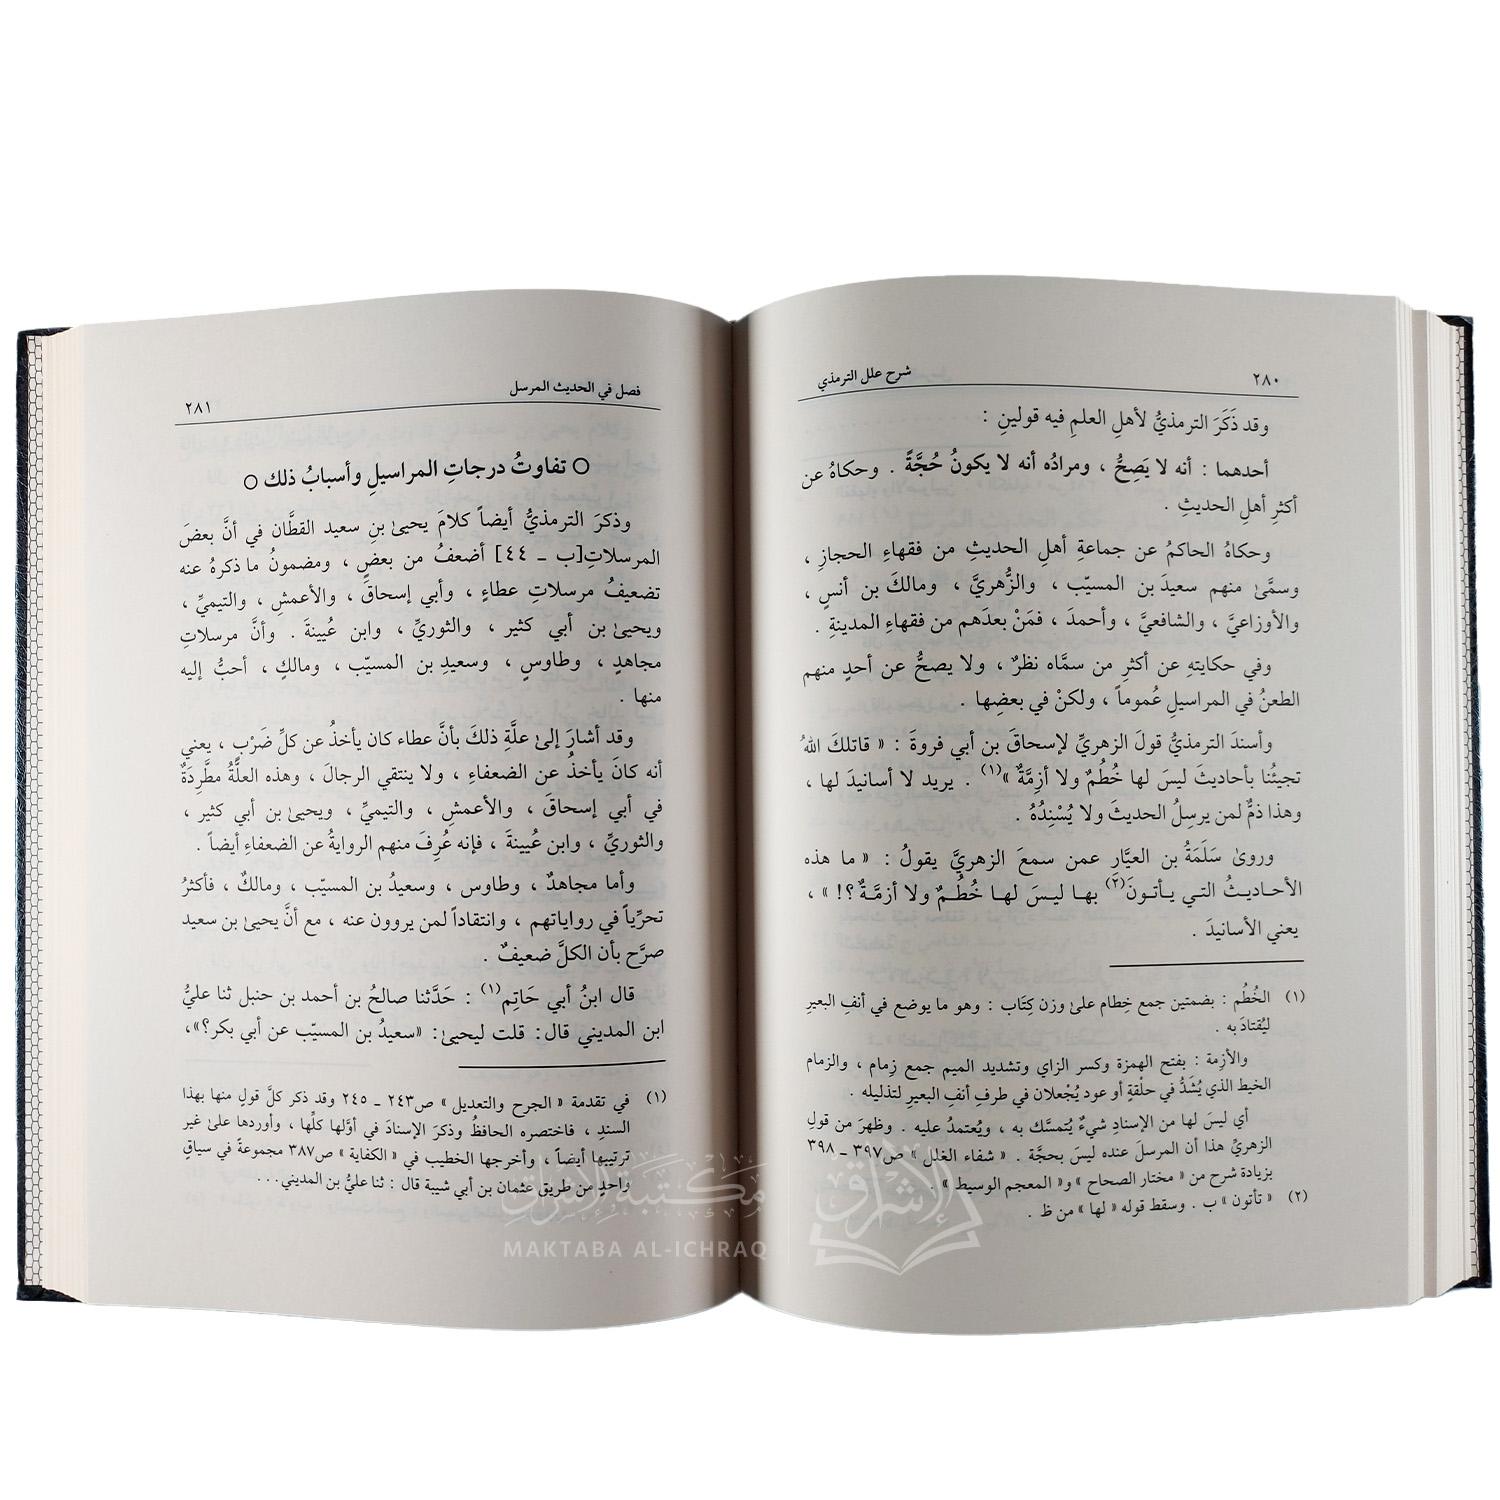 ٢٨٠
شرح علل الترمذي
وقد ذَكَرَ الترمذيُّ لأهلِ العلمِ فيه قولينِ :
أحدهما : أنه لا يَصِحُّ ، ومرادُه أنه لا يكونُ حُجَّةً . وحكاهُ عن
أكثرِ أهلِ الحديثِ .
وحكاهُ الحاكمُ عن جماعةِ أهلِ الحديثِ من فقهاءِ الحجازِ ،
وسمَّىٰ منهم سعيدَ بن المسيّب ، والزُّهريَّ ، ومالكَ بن أنسٍ ،
والأوزاعيَّ ، والشافعيَّ ، وأحمدَ ، فمَنْ بعدَهم من فقهاءِ المدينةِ .
وفي حكايتهِ عن أكثرِ من سمَّاه نظرٌ ، ولا يصحُّ عن أحدٍ منهم
الطعنُ في المراسيلِ عُموماً ، ولكنْ في بعضِها .
وأسندَ الترمذيُّ قولَ الزهريِّ لإسحاقَ بن أبي فروةَ : « قاتلكَ اللهُ
تجيئُنا بأحاديثَ ليسَ لها خُطُمٌ ولا أزِمَّةٌ »(١) . يريد لا أسانيدَ لها ،
وهذا ذمٌّ لمن يرسِلُ الحديثَ ولا يُسْنِدُهُ .
وروىٰ سَلَمَةُ بن العيَّارِ عمن سمعَ الزهريَّ يقولُ : « ما هذه
الأحاديثُ التي يأتونَ(٢) بها ليسَ لها خُطُمٌ ولا أزمَّةٌ ؟! » ،
يعني الأسانيدَ .
(١) الخُطُم : بضمتين جمع خِطام علىٰ وزن كِتَاب : وهو ما يوضع في أنفِ البعيرِ
ليُقتادَ به .
والأزِمة : بفتح الهمزة وكسر الزاي وتشديد الميم جمع زِمام ، والزمام
الخيط الذي يُشَدُّ في حلْقةٍ أو عود يُجْعلان في طرفِ أنفِ البعيرِ لتذليله .
أي ليسَ لها من الإسنادِ شيءٌ يُتمسَّك به ، ويُعتمدُ عليه . وظهرَ من قولِ
الزهريِّ هذا أن المرسلَ عنده ليسَ بحجَّة . « شفاء الغلل » ص٣٩٧ ـ ٣٩٨
بزيادة شرح من « مختار الصحاح » و« المعجم الوسيط » .
(٢) « تأتون » ب . وسقط قوله « لها » من ظ .
فصل في الحديث المرسل
٢٨١
○ تفاوتُ درجاتِ المراسيلِ وأسبابُ ذلك ○
وذكرَ الترمذيُّ أيضاً كلامَ يحيىٰ بنِ سعيد القطَّان في أنَّ بعضَ
المرسلاتِ[ب ـ ٤٤] أضعفُ من بعضٍ ، ومضمونُ ما ذكرهُ عنه
تضعيفُ مرسلاتِ عطاءٍ ، وأبي إسحاقَ ، والأعمشِ ، والتيميِّ ،
ويحيىٰ بن أبي كثير ، والثوريِّ ، وابن عُيينةَ . وأنَّ مرسلاتِ
مجاهدٍ ، وطاوسٍ ، وسعيدِ بن المسيّب ، ومالكٍ ، أحبُّ إليه
منها .
وقد أشارَ إلىٰ علَّةِ ذلكَ بأنَّ عطاء كان يأخذُ عن كلِّ ضَرْبٍ ، يعني
أنه كانَ يأخذُ عن الضعفاءِ ، ولا ينتقي الرجالَ ، وهذه العلةُ مطَّرِدَةٌ
في أبي إسحاقَ ، والأعمشِ ، والتيميِّ ، ويحيىٰ بن أبي كثير ،
والثوريِّ ، وابن عُيينةَ ، فإنه عُرِفَ منهم الروايةُ عن الضعفاءِ أيضاً .
وأما مجاهدٌ ، وطاوس ، وسعيدُ بن المسيّب ، ومالكٌ ، فأكثرُ
تحرِّياً في رواياتهم ، وانتقاداً لمن يروون عنه ، مع أنَّ يحيىٰ بن سعيد
صرَّح بأن الكلَّ ضعيفٌ .
قال ابنُ أبي حَاتِم(١) : حَدَّثنا صالحُ بن أحمد بن حنبل ثنا عليُّ
ابن المديني قال: قلت ليحيىٰ: «سعيدُ بن المسيّب عن أبي بكر؟»،
(١) في تقدمة « الجرح والتعديل » ص٢٤٣ ـ ٢٤٥ وقد ذكر كلَّ قولٍ منها بهذا
السندِ ، فاختصره الحافظُ وذكرَ الإسنادَ في أوَّلها كلِّها ، وأوردها علىٰ غير
ترتيبها أيضاً ، وأخرجها الخطيب في « الكفاية » ص٣٨٧ مجموعةً في سياقٍ
واحدٍ من طريق عثمان بن أبي شيبة قال : ثنا عليُّ بن المديني...
مكتبة الإشراق
MAKTABA AL-ICHRAQ
الإشراق